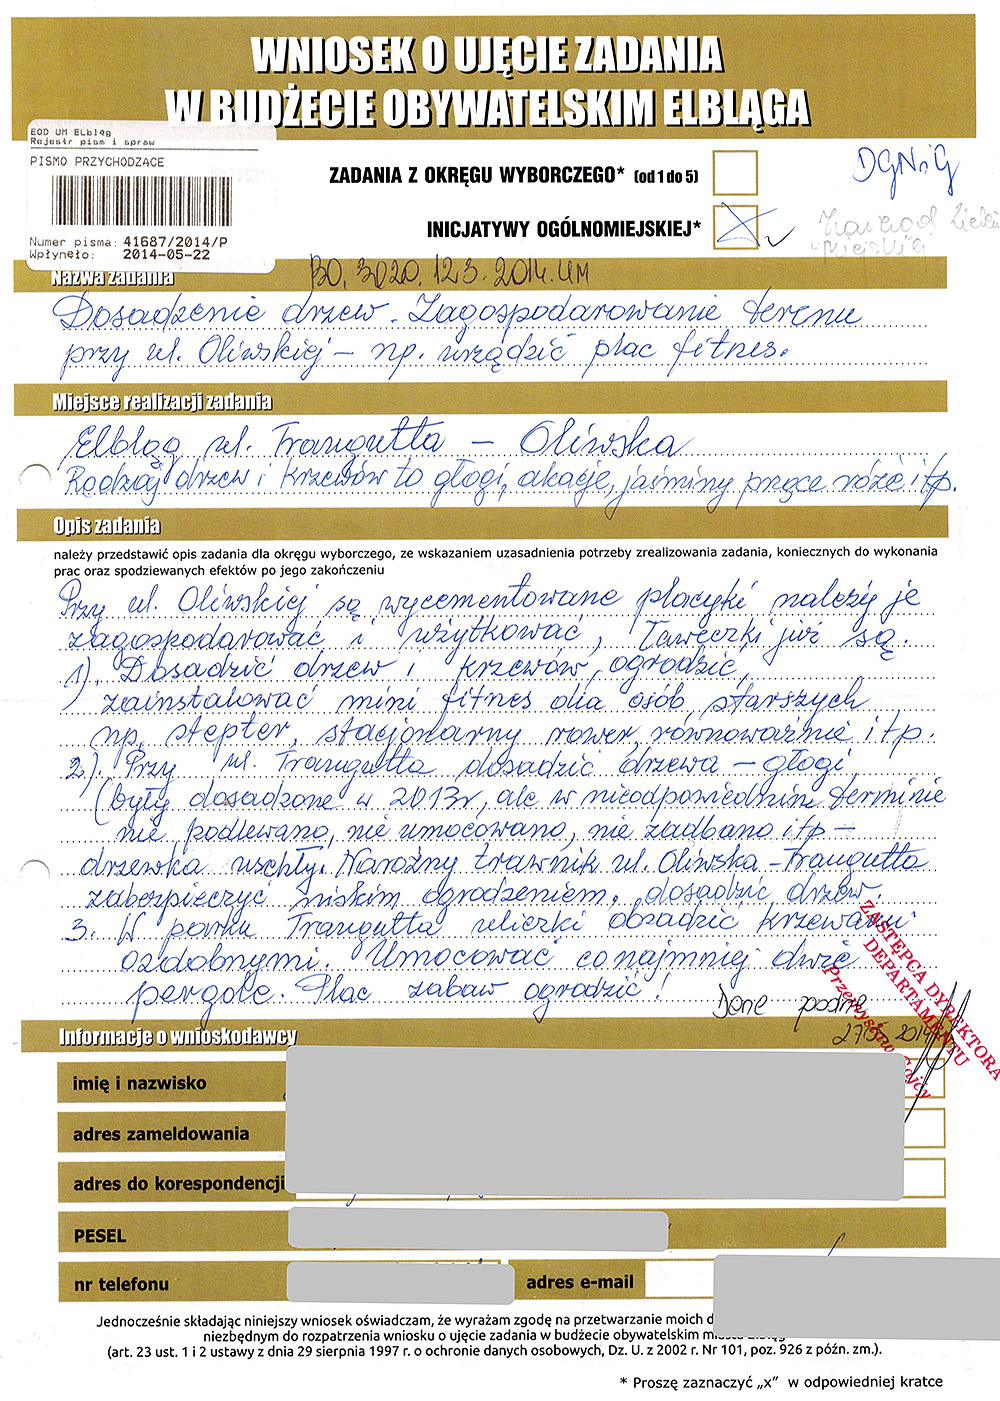 WNIOSEK O UJĘCIE ZADANIA
W BUDŻECIE OBYWATELSKIM ELBLĄGA
EOD UM Elbląg
Rejestr pism i spraw
PISMO PRZYCHODZĄCE
Numer pisma: 41687/2014/P
Wpłynęło: 2014-05-22
ZADANIA Z OKRĘGU WYBORCZEGO* (od 1 do 5)
DGNiG
INICJATYWY OGÓLNOMIEJSKIEJ*
Nazwa zadania
BO.3020.123.2014.UM
Dosadzenie drzew. Zagospodarowanie terenu
przy ul. Oliwskiej – np. urządzić plac fitnes.
Miejsce realizacji zadania
Elbląg ul. Traugutta – Oliwska
Rodzaj drzew i krzewów to głogi, akacje, jaśminy pnące róże itp.
Opis zadania
należy przedstawić opis zadania dla okręgu wyborczego, ze wskazaniem uzasadnienia potrzeby zrealizowania zadania, koniecznych do wykonania
prac oraz spodziewanych efektów po jego zakończeniu
Przy ul. Oliwskiej są wycementowane placyki należy je
zagospodarować i użytkować, ławeczki już są.
1). Dosadzić drzew i krzewów, ogrodzić,
zainstalować mini fitnes dla osób starszych
np. stepter, stacjonarny rower, równoważnie itp.
2). Przy ul. Traugutta dosadzić drzewa – głogi
(były dosadzone w 2013r, ale w nieodpowiednim terminie
nie podlewano, nie umocowano, nie zadbano itp –
drzewka uschły. Narożny trawnik ul. Oliwska – Traugutta
zabezpieczyć niskim ogrodzeniem, dosadzić drzew.
3. W parku Traugutta uliczki obsadzić krzewami
ozdobnymi. Umocować conajmniej dwie
pergole. Plac zabaw ogrodzić!
ZASTĘPCA DYREKTORA
DEPARTAMENTU
Przemysław
Informacje o wnioskodawcy
imię i nazwisko
adres zameldowania
adres do korespondencji
PESEL
nr telefonu
adres e-mail
Jednocześnie składając niniejszy wniosek oświadczam, że wyrażam zgodę na przetwarzanie moich
niezbędnym do rozpatrzenia wniosku o ujęcie zadania w budżecie obywatelskim miasta Elbląg
(art. 23 ust. 1 i 2 ustawy z dnia 29 sierpnia 1997 r. o ochronie danych osobowych, Dz. U. z 2002 r. Nr 101, poz. 926 z późn. zm.).
* Proszę zaznaczyć „x” w odpowiedniej kratce